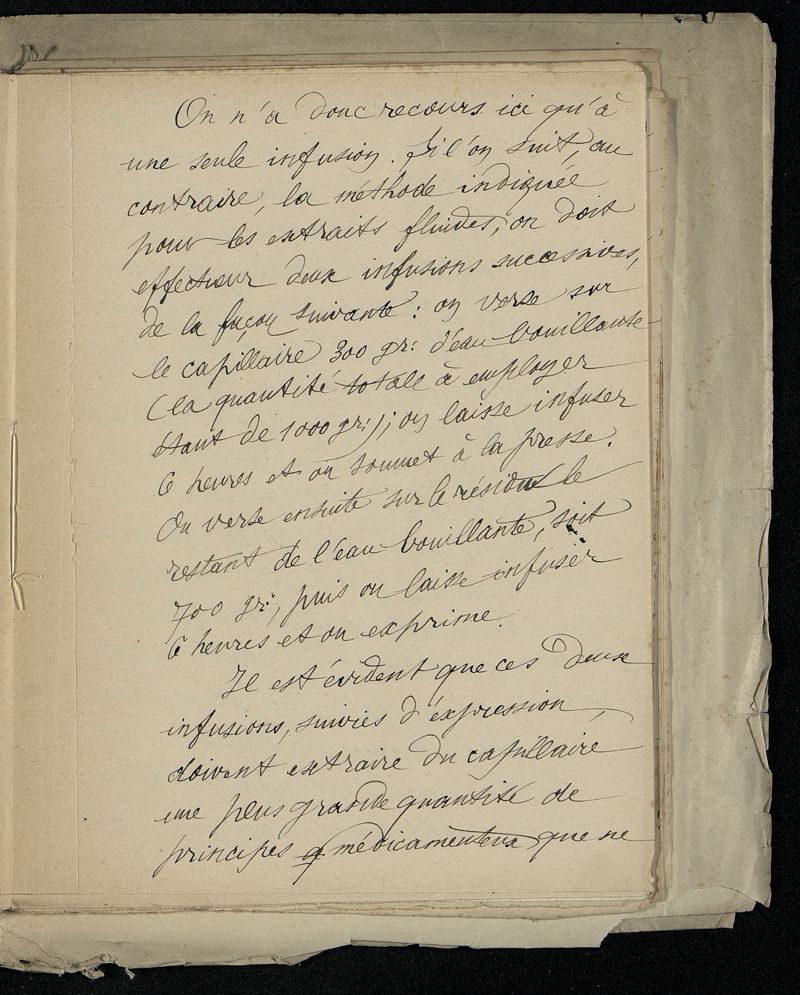 On n'a donc recours ici qu'à
une seule infusion. Si l'on suit, au
contraire, la méthode indiquée
pour les extraits fluides, on doit
effectuer deux infusions successives,
de la façon suivante : on verse sur
le capillaire 300 gr: d'eau bouillante
(la quantité totale à employer
étant de 1000 gr:); on laisse infuser
6 heures et on soumet à la presse.
On verse ensuite sur le résidu le
restant de l'eau bouillante, soit
700 gr:, puis on laisse infuser
6 heures et on exprime.
Il est évident que ces deux
infusions, suivies d'expression,
doivent extraire du capillaire
une plus grande quantité de
principes médicamenteux que ne